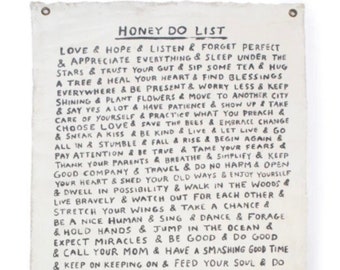 HONEY DO LIST
LOVE & HOPE & LISTEN & FORGET PERFECT
& APPRECIATE EVERYTHING & SLEEP UNDER THE
STARS & TRUST YOUR GUT & SIP SOME TEA & HUG
A TREE & HEAL YOUR HEART & FIND BLESSINGS
EVERYWHERE & BE PRESENT & WORRY LESS & KEEP
SHINING & PLANT FLOWERS & MOVE TO ANOTHER CITY
& SAY YES A LOT & HAVE PATIENCE & SHOW UP & TAKE
CARE OF YOURSELF & PRACTICE WHAT YOU PREACH &
CHOOSE LOVE & SAVE THE BEES & EMBRACE CHANGE
& SNEAK A KISS & BE KIND & LIVE & LET LIVE & GO
ALL IN & STUMBLE & FALL & RISE & BEGIN AGAIN &
PAY ATTENTION & BE TRUE & TAME YOUR FEARS &
THANK YOUR PARENTS & BREATHE & SIMPLIFY & KEEP
GOOD COMPANY & TRAVEL & DO NO HARM & OPEN
YOUR HEART & SHED YOUR OLD WAYS & ENJOY YOURSELF
& DWELL IN POSSIBILITY & WALK IN THE WOODS &
LIVE BRAVELY & WATCH OUT FOR EACH OTHER &
STRETCH YOUR WINGS & TAKE A CHANCE &
BE A NICE HUMAN & SING & DANCE & FORAGE
& HOLD HANDS & JUMP IN THE OCEAN &
EXPECT MIRACLES & BE GOOD & DO GOOD
& CALL YOUR MOM & HAVE A SMASHING GOOD TIME
& KEEP ON KEEPING ON & FEED YOUR SOUL & DO